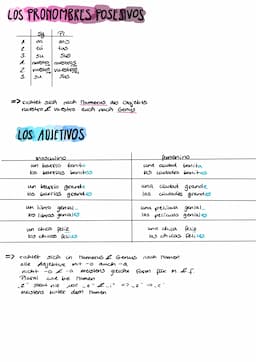 LOS PRONOMBRES POSESIVOS
Sg Pl
1. mi mis
2. tu tus
3. su sus
1. nuestro nuestros
2. vuestro vuestros
3. su sus
=> richtet sich nach Numerus des Objekts
nuestro & vuestro auch nach Genus
LOS ADJETIVOS
masculino femenino
un barrio bonito una ciudad bonita
los barrios bonitos las ciudades bonitas
un barrio grande una ciudad grande
los barrios grandes las ciudades grandes
un libro genial una película genial
los libros geniales las películas geniales
un chico feliz una chica feliz
los chicos felices las chicas felices
=> richtet sich in Numerus & Genus nach Nomen
alle Adjektive mit -o auch -a
nicht -o & -a meistens gleiche Form für M & F
Plural wie bei Nomen
meistens hinter dem Nomen